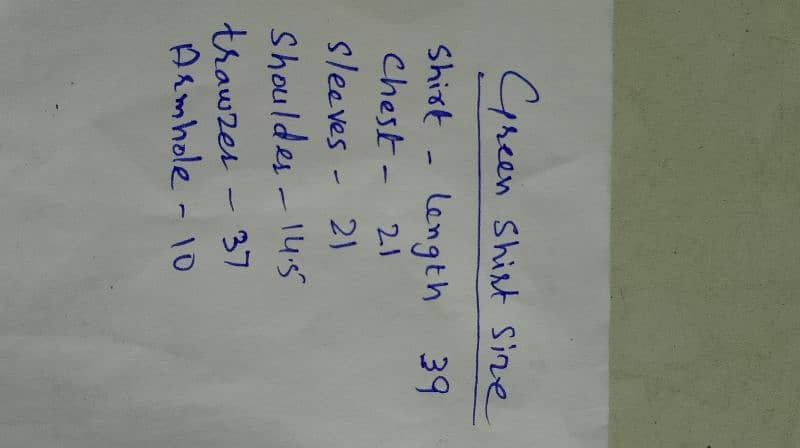 Green Shirt Size
Shirt - Length 39
Chest - 21
Sleeves - 21
Shoulder - 14.5
trawzer - 37
Armhole - 10